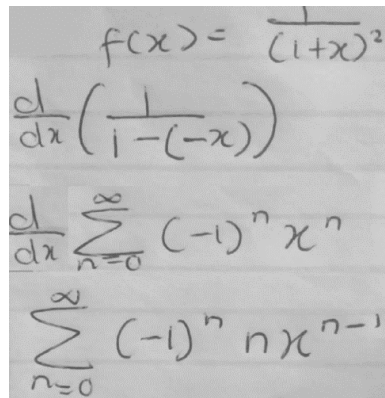 f(x) = 1/(1+x)²
d/dx (1/(1-(-x)))
d/dx ∑_{n=0}^{∞} (-1)ⁿ xⁿ
∑_{n=0}^{∞} (-1)ⁿ n xⁿ⁻¹